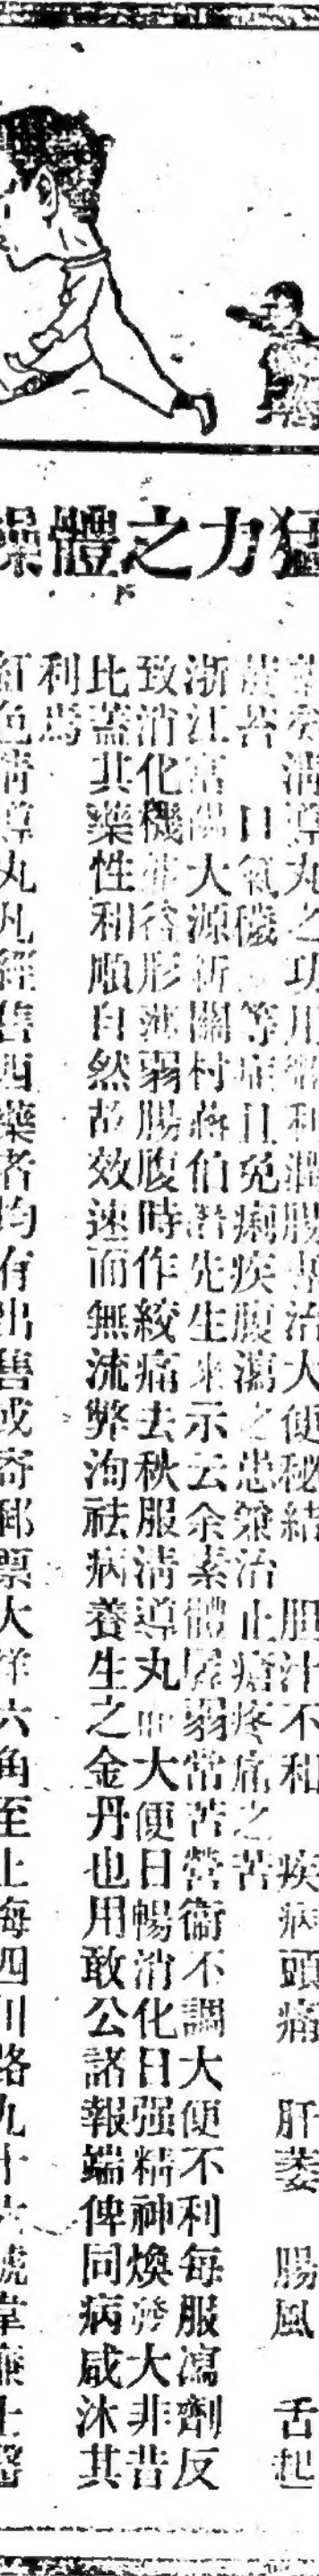 猛力之體操
清導丸之功用 利潤腸專治大便秘結 胆汁不和 疾病頭痛 肝萎 腸風 舌起
苔 口氣穢 等症且免痢疾腹瀉之患兼治止瘡疼痛之苦
浙江富陽大源新關村蔣伯 先生來示云余素體孱弱常苦營衞不調大便不利每服瀉劑反
致消化機 形 弱腸腹時作絞痛去秋服淸導丸 大便日暢消化日强精神煥發大非昔
比蓋其藥性和順自然故效速而無流弊洵祛病養生之金丹也用敢公諸報端俾同病咸沐其
利焉
紅色清導丸凡經售西藥者均有出售或寄郵票大洋六角至上海四川路九十六號韋廉士醫